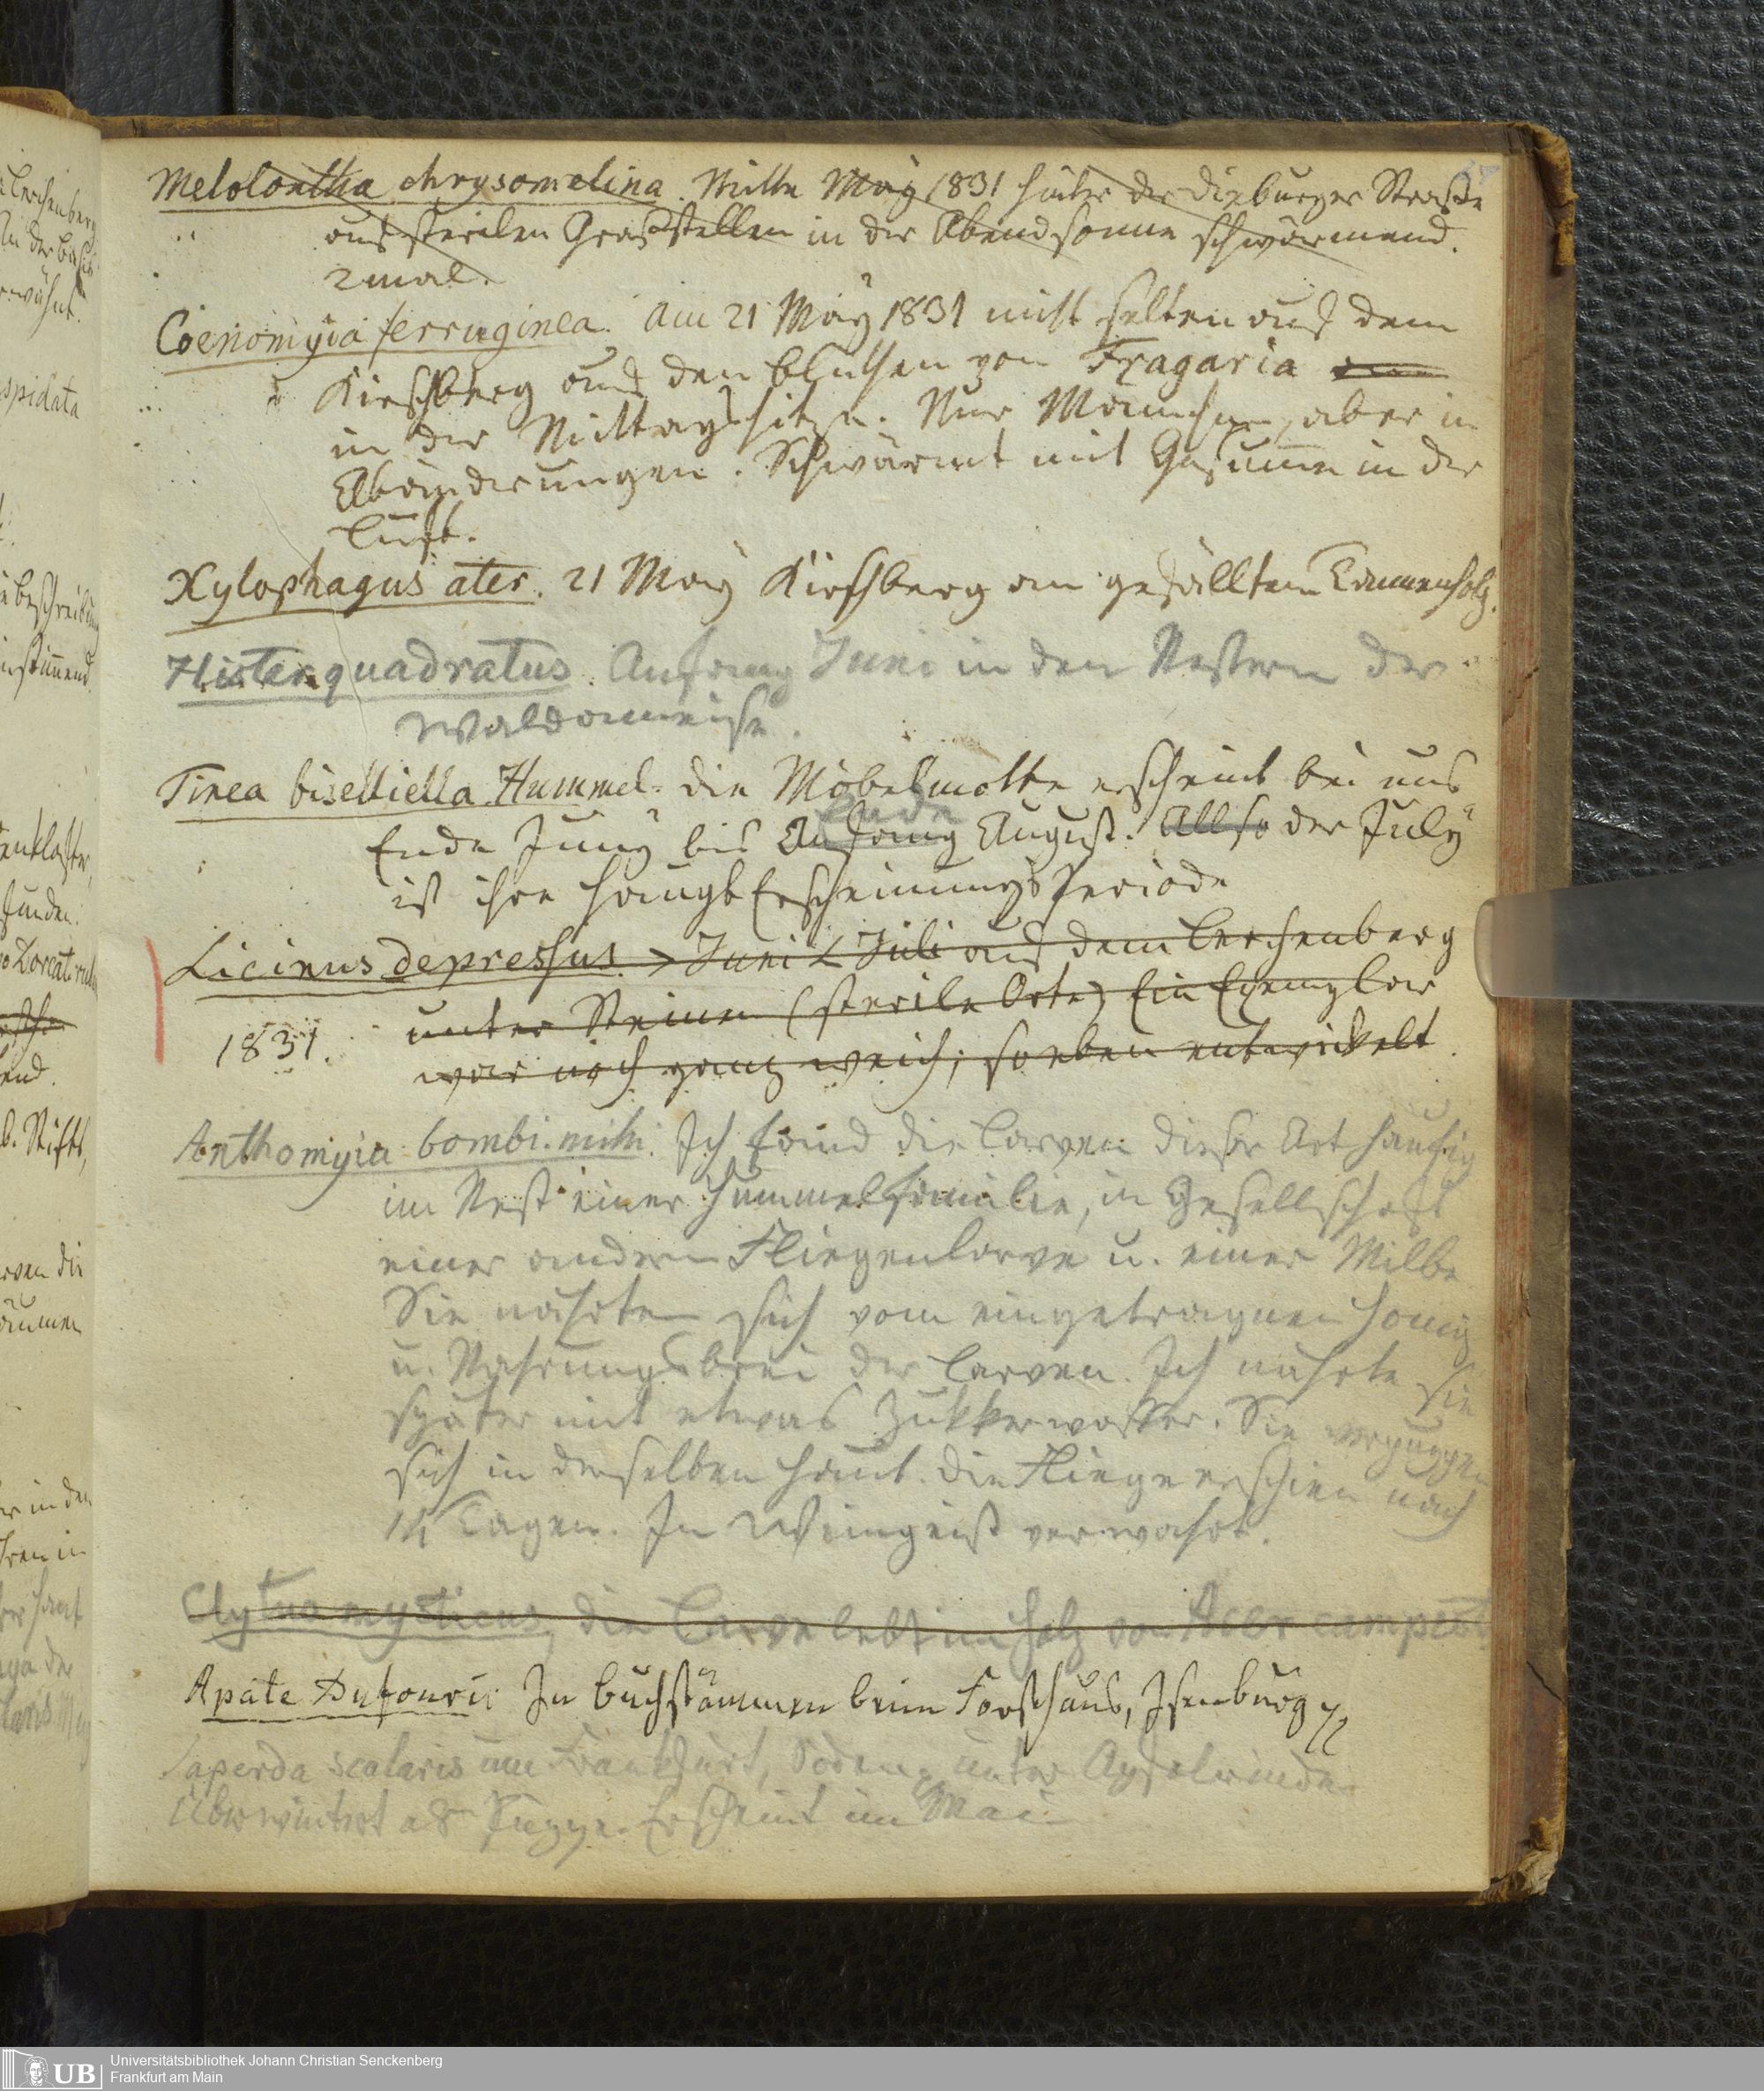 Melolontha chrysomelina. Mitte May 1831 hinter der Dieburger Straße
auf sterilen Grasstellen in der Abendsonne schwärmend.
2mal.
Coenomyia ferruginea. Am 21 May 1831 nicht selten auf dem
Kirschberg auf den Blüthen von Fragaria
in der Mittagshitze. Nur Männchen, aber in
Abänderungen. Schwärmt mit Gesumm in der
Luft.
Xylophagus ater. 21 May Kirschberg an gefälltem Tannenholz.
Hister quadratus. Anfang Juni in den Nestern der
Waldameise.
Tinea biselliella Hummel. Die Möbelmotte erscheint bei uns
Ende
Ende Juny bis Anfang August. Allso der July
ist ihre Haupt Erscheinungs Periode
Licinus depressus > Juni < Juli auf dem Lerchenberg
unter Steinen (sterile Orte) Ein Exemplar
1831. war noch ganz weich; so eben entwickelt.
Anthomyia bombi. mihi. Ich fand die Larven dieser Art häufig
im Nest einer Hummelfamilie, in Gesellschaft
einer andern Fliegenlarve u. einer Milbe
Sie nährten sich vom eingetragnen Honig
u. Nahrungsbrei der Larven. Ich nährte sie
später mit etwas Zukkerwasser. Sie verpuppen
sich in derselben Haut. Die Fliege erschien nach
14 Tagen. In Weingeist verwahrt.
Clytus mysticus, die Larve lebt im Holz von Acer campest
Apate Dufourii In Buchstämmen beim Forsthaus, Isenburg
Saperda scalaris um Frankfurt, Soden, unter Apfelrinde
Überwintert als Puppe. Erscheint im Mai
UB Universitätsbibliothek Johann Christian Senckenberg
Frankfurt am Main